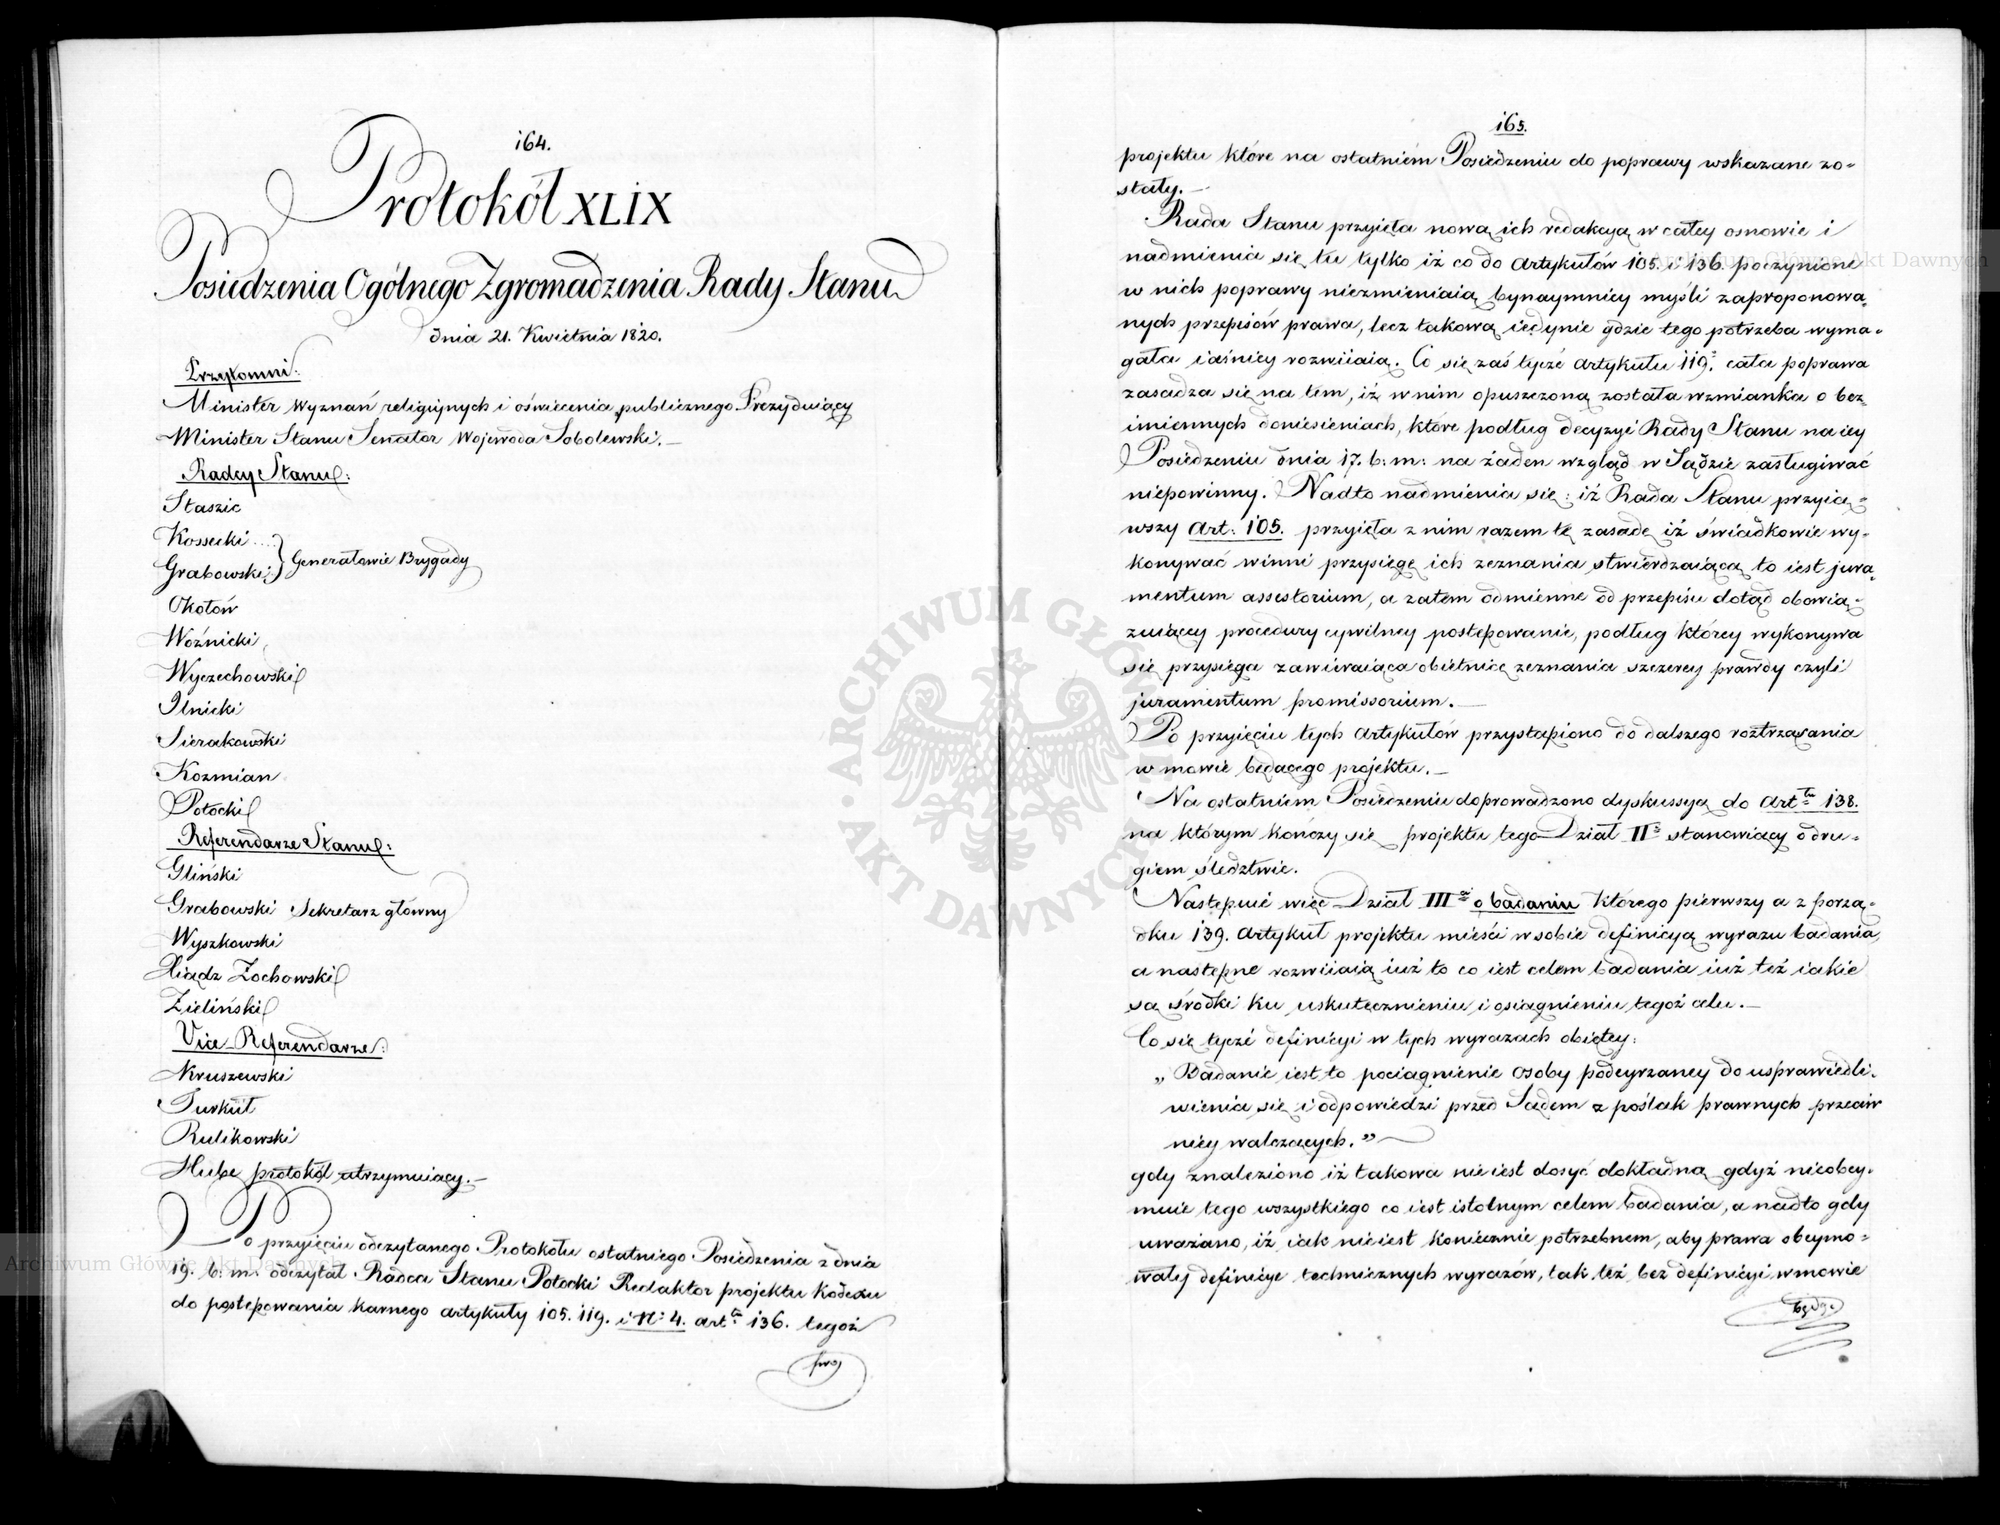 164.
Protokół XLIX
Posiedzenia Ogólnego Zgromadzenia Rady Stanu
dnia 21. Kwietnia 1820.
Przytomni:
Minister Wyznań religiynych i oświecenia publicznego Prezyduiący
Minister Stanu Senator Woiewoda Sobolewski.—
Radcy Stanu:
Staszic
Kossecki....
Grabowski} Generałowie Brygady
Okołow
Woźnicki
Wyczechowski
Ilnicki
Sierakowski
Kozmian
Potocki
Referendarze Stanu:
Gliński
Grabowski Sekretarz główny
Wyszkowski
Xiądz Zochowski
Zieliński
Vice-Referendarze:
Kruszewski
Turkuł
Rulikowski
Hube protokół utrzymuiący.—
Po przyięciu odczytanego Protokółu ostatniego Posiedzenia z dnia
19. b: m. odczytał Radca Stanu Potocki Redaktor projektu Kodexu
do postępowania karnego artykuły 105. 119. i N: 4. artłu 136. tegoż
pro
165.
projektu które na ostatniem Posiedzeniu do poprawy wskazane zo-
stały.—
Rada Stanu przyięła nową ich redakcyą w całey osnowie i
nadmienia się tu tylko iż co do artykułów 105. i 136. poczynione
w nich poprawy niezmieniaią bynaymniey myśli zaproponowa-
nych przepisów prawa, lecz takową iedynie gdzie tego potrzeba wyma-
gała iaśniey rozwiiaią. Co się zaś tycze artykułu 119. cała poprawa
zasadza się na tem, iż w nim opuszczoną została wzmianka o bez-
imiennych doniesieniach, które podług decyzyi Rady Stanu na iey
Posiedzeniu dnia 17. b: m: na żaden wzgląd w Sądzie zasługiwać
niepowinny. Nadto nadmienia się: iż Rada Stanu przyią-
wszy Art: 105. przyięła z nim razem tę zasadę iż świadkowie wy-
konywać winni przysięgę ich zeznania stwierdzaiącą to iest jura-
mentum assestorium, a zatem odmienne od przepisu dotąd obowią-
zuiącey procedury cywilney postępowanie, podług którey wykonywa
się przysięga zawieraiąca obietnicę zeznania szczerey prawdy czyli
juramentum promissorium.—
Po przyięciu tych artykułów przystąpiono do dalszego roztrząsania
w mowie będącego projektu.—
Na ostatniem Posiedzeniu doprowadzono dyskussyą do Artłu 138.
na którym kończy się projektu tego Dział II stanowiący o dru-
giem śledztwie.
Następuie więc Dział III o badaniu którego pierwszy a z porzą-
dku 139. artykuł projektu mieści w sobie definicyą wyrazu badania,
a następne rozwiiaią iuż to co iest celem badania iuż też iakie
są środki ku uskutecznieniu i osiągnieniu tegoż celu.—
Co się tycze definicyi w tych wyrazach obiętey:
„Badanie iest to pociągnienie osoby podeyrzaney do usprawiedli-
wienia się i odpowiedzi przed Sądem z poślak prawnych przeciw
niey walczących.”
gdy znaleziono iż takowa nie iest dosyć dokładną gdyż nieobey-
muie tego wszystkiego co iest istotnym celem badania, a nadto gdy
uważano, iż iak nie iest koniecznie potrzebnem, aby prawa obeymo-
wały definicye technicznych wyrazów, tak też bez definicyi w mowie
będą-
ARCHIWUM GŁÓWNE AKT DAWNYCH
Archiwum Główne Akt Dawnych
Archiwum Główne Akt Dawnych